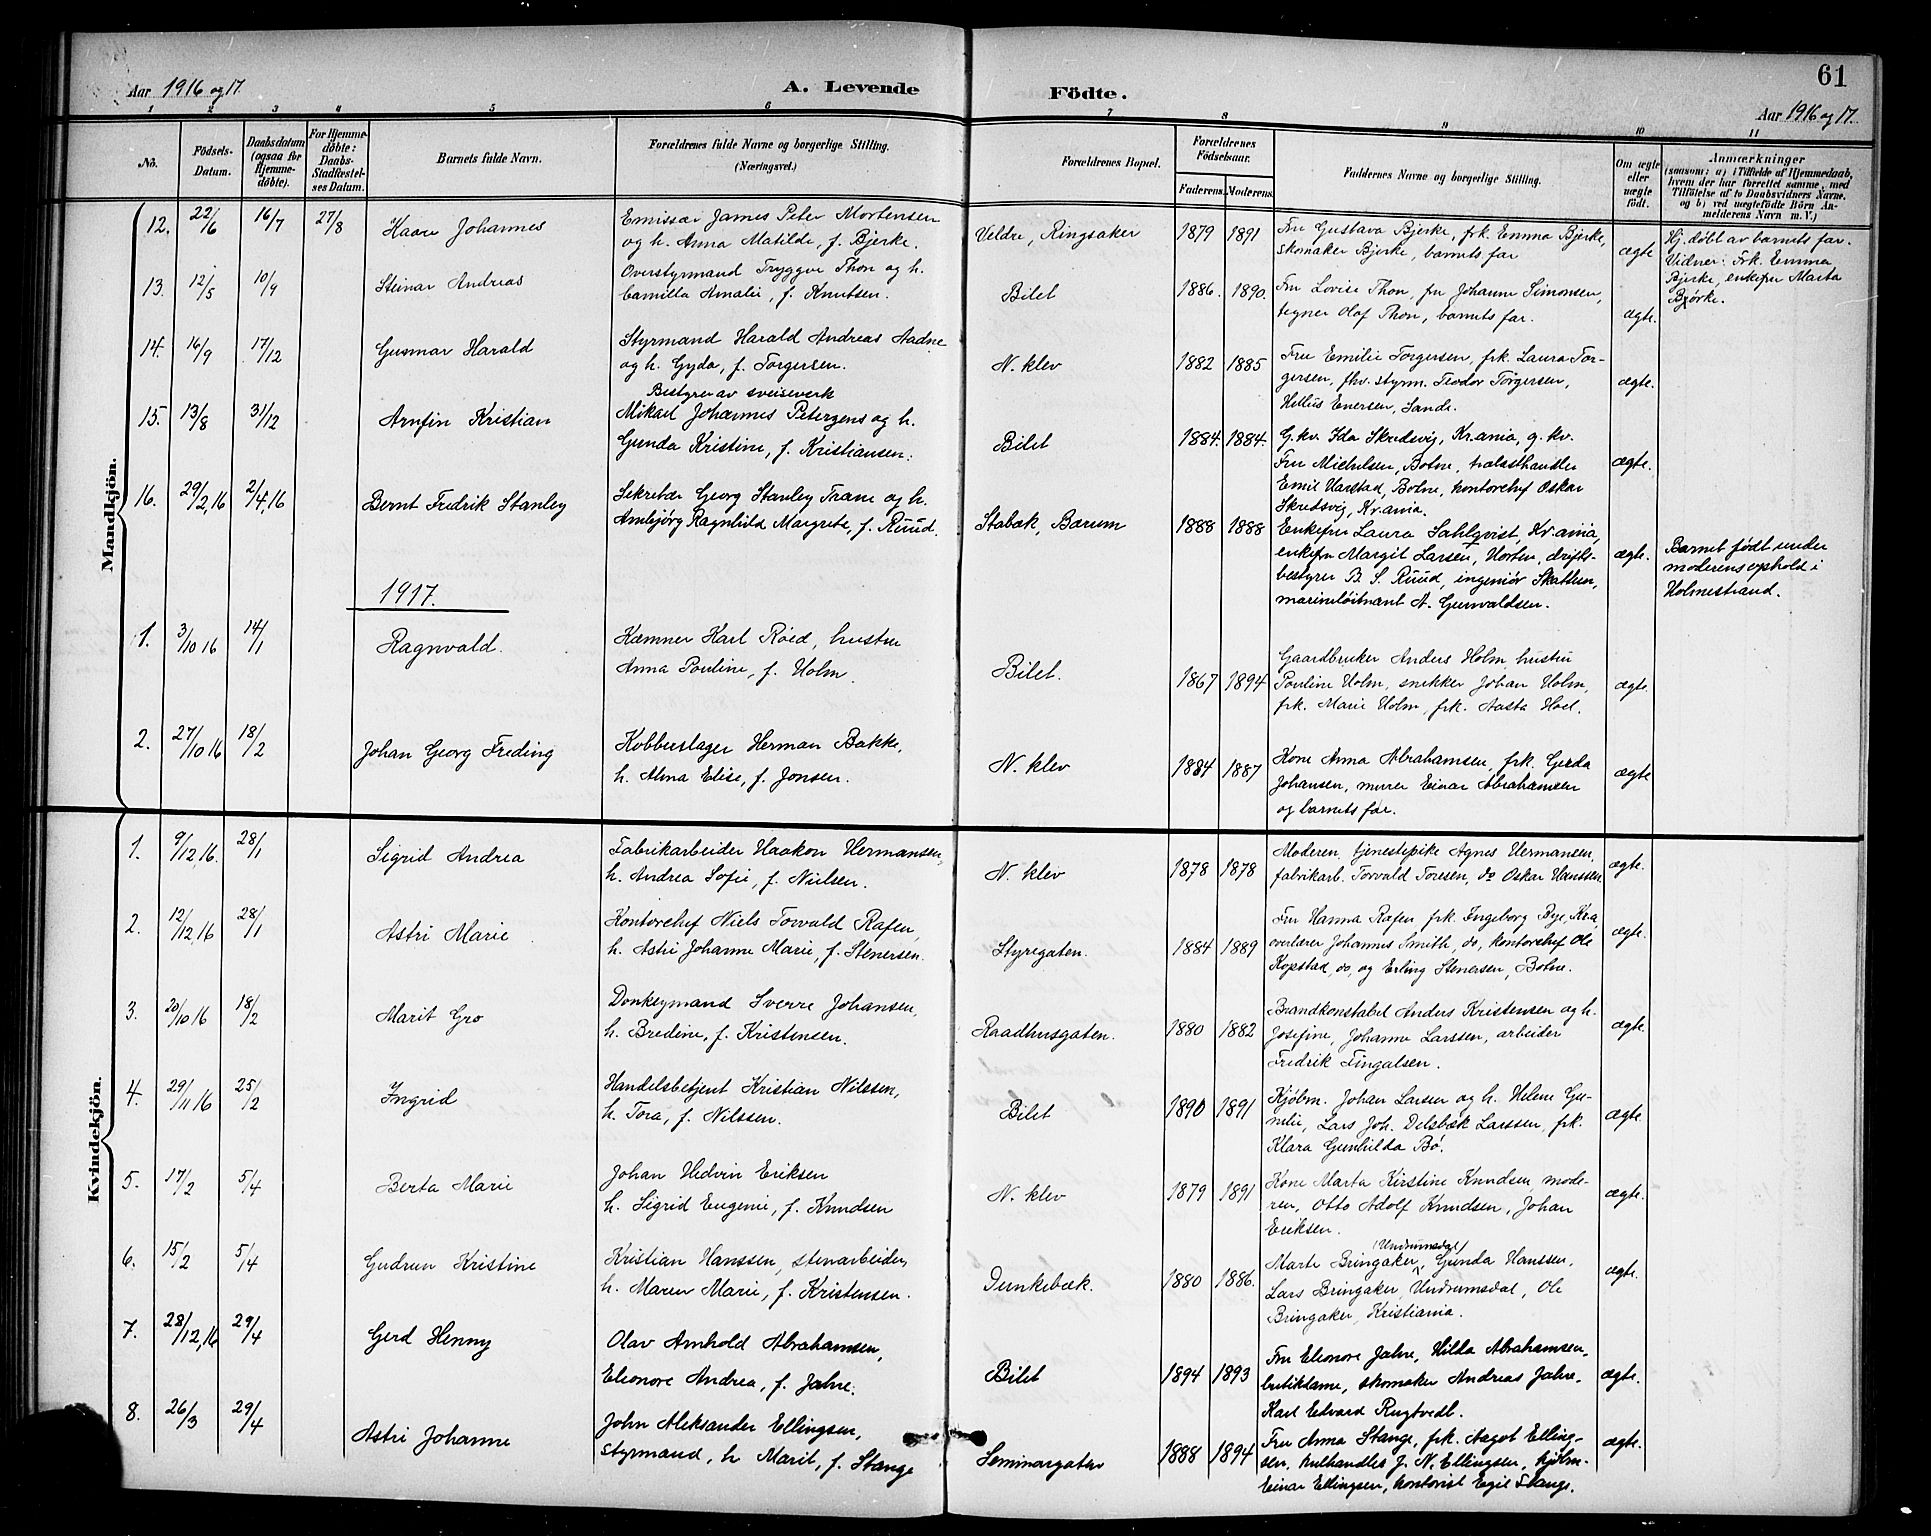 61
Aar 1916 og 17.
A. Levende
Födte.
Aar 1916 og 17.
1 2 3 4 5 6 7 8 9 10 11
No.
Födsels-
Datum.
Daabsdatum
(ogsaa for
Hjemme-
döbte).
For Hjemme-
döbte:
Daabs-
Stadfæstel-
ses Datum.
Barnets fulde Navn.
Forældrenes fulde Navne og borgerlige Stilling.
(Næringsvei.)
Forældrenes Bopæl.
Forældrenes
Födselsaar.
Faderens. Moderens.
Faddernes Navne og borgerlige Stilling.
Om ægte
eller
uægte
født.
Anmærkninger
(saasom: a) i Tilfælde af Hjemmedaab,
hvem der har forrettet samme, med
Tilföielse af to Daabsvidners Navne.
og b) ved uægtefödte Börn An-
melderens Navn m. V.)
Mandkjön.
12. 22/6 16/7 27/8 Haare Johannes
Emissær James Peter Mortensen
og h. Anna Matilde, f. Bjerke.
Veldre, Ringsaker 1879 1891
Fru Gustava Bjerke, frk. Emma Bjerke,
skomaker Bjerke, barnets far
ægte
Hj. døbt av barnets far.
Vidner: Frk. Emma
Bjerke, enkefru Marta
Bjørke.
13. 12/5 10/9 Steinar Andreas
Overstyrmand Tryggve Thon og h.
Camilla Amalie, f. Knutsen.
Bilet 1886. 1890.
Fru Lovise Thon, fru Johanne Simonsen,
tegner Olof Thon, barnets far.
ægte.
14. 16/9 17/12 Gunnar Harald
Styrmand Harald Andreas Aadne
og h. Gyda, f. Torgersen.
N. klev 1882 1885
Fru Emilie Torgersen, frk. Laura Tor-
gersen, fhv. styrm. Teodor Torgersen,
Hellius Enersen, Sande.
ægte.
15. 13/8 31/12 Arnfin Kristian
Bestyrer av sveiseverk
Mikael Johannes Petersens og h.
Gunda Kristine, f. Kristiansen.
Bilet 1884. 1884.
G. kv. Ida Skredsvig, Kr.ania, g. kv.
Fru Michelsen, Botne, trælasthandler
Emil Harstad, Botne, kontorchef Oskar
Skredsvig, Kr.ania.
ægte.
16. 29/2, 16 2/4, 16 Bernt Fredrik Stanley
Sekretær Georg Stanley Trane og h.
Ambjørg Ragnhild Margrete, f. Ruud.
Stabæk, Bærum 1888 1888
Enkefru Laura Sahlqvist, Kr.ania,
enkefru Margit Larsen, Horten, drifts-
bestyrer B. S. Ruud, ingeniør Skattum,
marineløitnant A. Gunvaldsen.
ægte.
Barnet født under
moderens ophold i
Holmestrand.
1917.
1. 3/10 16 14/1 Ragnvald.
Kæmner Karl Røed, hustru
Anna Pouline, f. Holm
Bilet. 1867 1894
Gaardbruker Anders Holm, hustru
Pouline Holm, snekker Johan Holm,
frk. Marie Holm, frk. Aasta Hoel.
ægte.
2. 27/10 16 18/2 Johan Georg Freding
Kobberslager Herman Bakke,
h. Alma Elise, f. Jonsen.
N. klev 1884 1887
Kone Anna Abrahamsen, frk. Gerda
Johansen, murer Einar Abrahamsen
og barnets far.
ægte
Kvindekjön.
1. 9/12, 16. 28/1 Sigrid Andrea
Fabrikarbeider Haakon Hermansen,
h. Andrea Sofie, f. Nielsen.
N. klev 1878 1878
Moderen, tjenestepike Agnes Hermansen,
fabrikarb. Torvald Toresen, do Oskar Hanssen
ægte.
2. 12/12, 16 28/1 Astri Marie
Kontorchef Niels Torvald Rafen,
h. Astri Johanne Marie, f. Stenersen.
Styregaten. 1884 1889
Fru Hanna Rafen, frk. Ingeborg Bye, Kra,
overlærer Johannes Smith, do, kontorchef Ole
Kopstad, do, og Erling Stenersen, Botne.
ægte.
3. 20/10 16 18/2 Marit Gro
Donkeymand Sverre Johansen,
h. Bredine, f. Kristensen.
Raadhusgaten. 1880 1882
Brandkonstabel Anders Kristensen og h.
Josefine, Johanne Larssen, arbeider
Fredrik Fingalsen.
ægte.
4. 29/11 16 25/2 Ingrid
Handelsbetjent Kristian Nilssen,
h. Tora, f. Nilssen.
Bilet 1890 1891
Kjøbm. Johan Larsen og h. Helene Gu-
nelie, Lars Joh. Delsbæk Larssen, frk.
Klara Gunhilda Bø.
ægte.
5. 17/2 5/4 Berta Marie
Johan Hedvin Eriksen
h. Sigrid Eugenie, f. Knudsen
N. klev 1879 1891
Kone Marta Kirstine Knudsen, mode-
ren, Otto Adolf Knudsen, Johan
Eriksen.
ægte.
6. 15/2 5/4 Gudrun Kristine
Kristian Hanssen, stenarbeider,
h. Maren Marie, f. Kristensen.
Dunkebæk. 1880 1886.
(Undrumsdal)
Marte Bringaker, Gunda Hanssen,
Lars Bringaker, Undrumsdal, Ole
Bringaker, Kristiania.
ægte.
7. 28/12, 16 29/4 Gerd Henny
Olav Arnhold Abrahamsen,
Eleonore Andrea, f. Jahre.
Bilet 1894 1893
Fru Eleonore Jahre, Hilda Abrahamsen,
butikdame, skomaker Andreas Jahre,
Karl Edvard Rugtvedt.
ægte.
8. 26/3 29/4 Astri Johanne
John Aleksander Ellingsen,
styrmand, h Marit, f. Stange
Seminargaten 1888 1894
Fru Anna Stange, frk. Aagot Elling-
sen, kulhandler J. N. Ellingsen, kjøbm.
Einar Ellingsen, kontorist Egil Stange.
ægte.